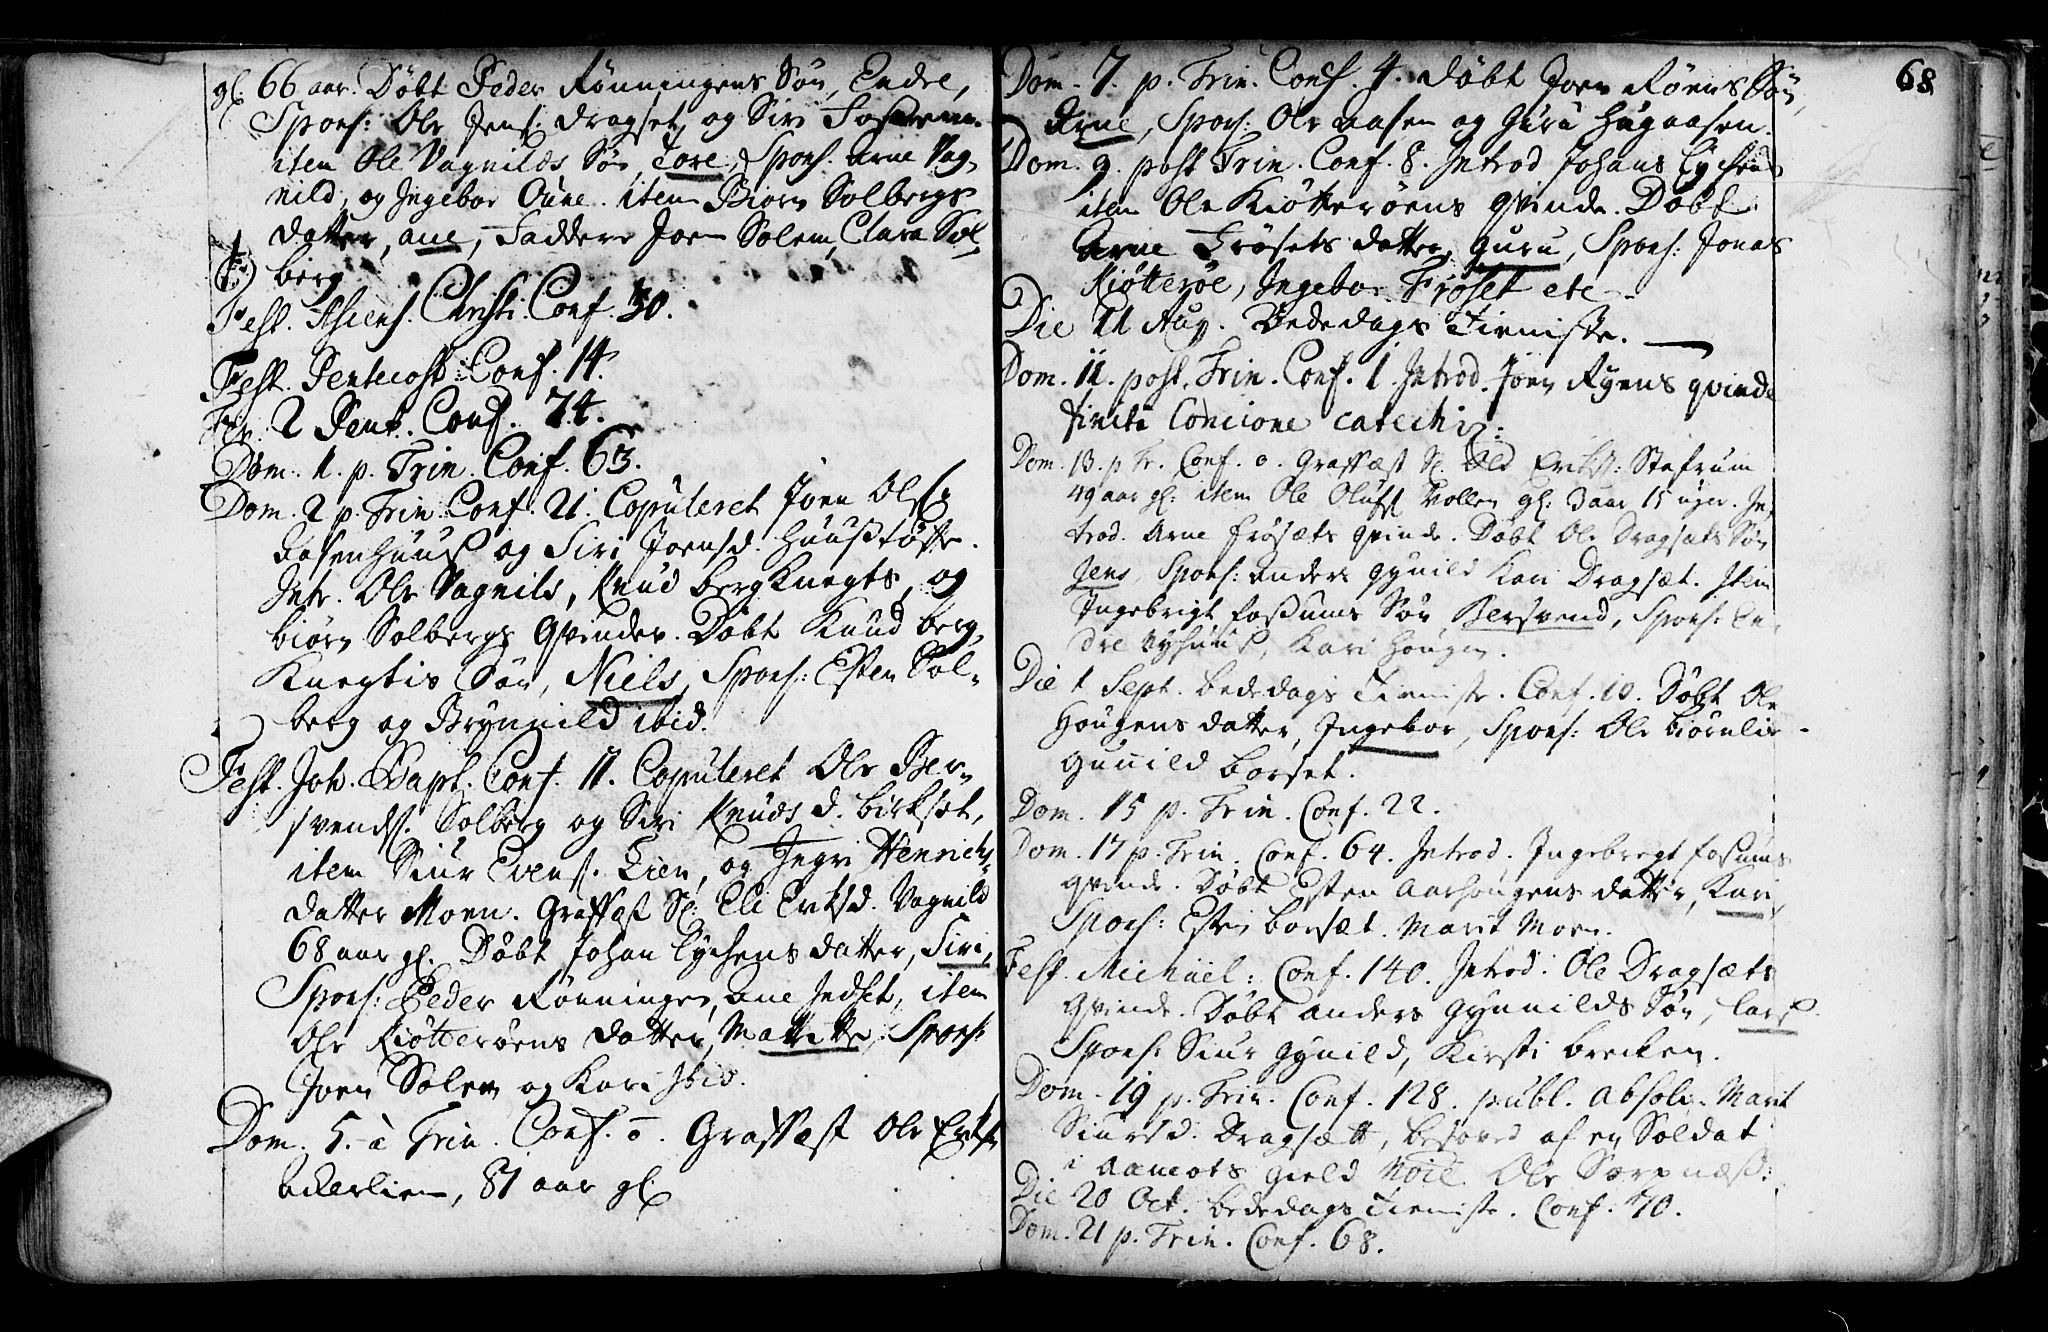 gl. 66 aar. Døbt Peder Rønningens Søn, Endre,
Spons: Ole Jens: Dragset, og Siri
item Ole Vagnilds Søn, Tore, Spons. Arne Vag-
nild, og Ingebor Oune. item Biørn Solbergs
datter, ane, Faddere Joen Solem, Clara Sol-
berg
Fest. Ascens. Christi. Conf. 30.
Fest. Pentecost: Conf. 14.
Fer. 2 Pent. Conf. 74.
Dom. 1. p. Trin. Conf. 63.
Dom. 2 p. Trin. Conf. 21. Copuleret Joen Ols:
Aasenhuus og Siri Joensd. Huustøfte.
Intr. Ole Vagnils, Knud bergknegts, og
biørn Solbergs Qvinder. Døbt Knud berg-
Knegtis Søn, Niels, Spons: Esten Sol-
berg og Brynnild ibid.
Fest. Joh. Bapt. Conf. 11. Copuleret Ole Ber-
svends. Solberg og Siri Knuds d. birkset,
item Siur Evens. Lien, og Ingri Henrichs
datter Moen. Graffæst Sl: Eli Eriksd. Vagnild
68 aar gl. Døbt Johan Lychens datter, Siri,
Spons: Peder Rønningen, Ane Indset, item
Ole Kiøtterøens datter, Marette, Spons:
Joen Solem og Kari Ibid.
Dom. 5. à Trin. Conf. 0. Graffæst Ole Eriks:
Ackerlien, 81 aar gl.
68
Dom. 7. p. Trin. Conf. 4. døbt Joen Røens Søn,
Arne, Spons: Ole Aasen og Guru Hugaasen.
Dom. 9. post Trin. Conf. 8. Introd Johans Lychens
item Ole Kiøtterøens qvinde. Døbt
Arne Frøsets datter, guru, Spons: Jonas
Kiøtterøe, Ingebor Frøset etc.
Die 11 Aug. Bededags Tieniste.
Dom. 11. post. Trin. Conf. 1. Introd. Joen Ryens qvinde
finita Concione catechiz:
Dom. 13. p Tr. Conf. 0. Graffæst Sl. Eriks: Stefrum
49 aar gl: item Ole Olufs Vollen gl: 3 aar 15 uger. In-
trod. Arne Frøsæts qvinde. Døbt Ole Dragsæts Søn
Jens, Spons: Anders gynild Kari Dragsæt. Item
Ingebrigt Fossums Søn, Bersvend, Spons: En-
dre Nyhuus, Kari Hougen.
Die 1 Sept. bededags Tieniste. Conf. 10. Døbt Ole
Hougens datter, Ingebor, Spons: Ole biørnlie
gunild borset.
Dom. 15 p. Trin. Conf. 22.
Dom. 17 p. Trin. Conf. 64. Introd. Ingebregt fossums
qvinde. Døbt Esten Aashougens datter, Kari,
Spons: Esten borsæt. Marit Moen.
Fest. Michael: Conf. 140. Introd. Ole Dragsæts
Qvinde. Døbt Anders Gynnilds Søn, Lars.
Spons: Siur gynild, Kirsti brecken.
Dom. 19 p. Trin. Conf. 128. publ. Absolv. Marit
Siursd. Dragsætt, besovet af en Soldat
i Aamots gield Ole Sorpnæss:
Die 20 Oct. bededags Tieniste. Conf. 70.
Dom. 21 p. Trin. Conf. 68.